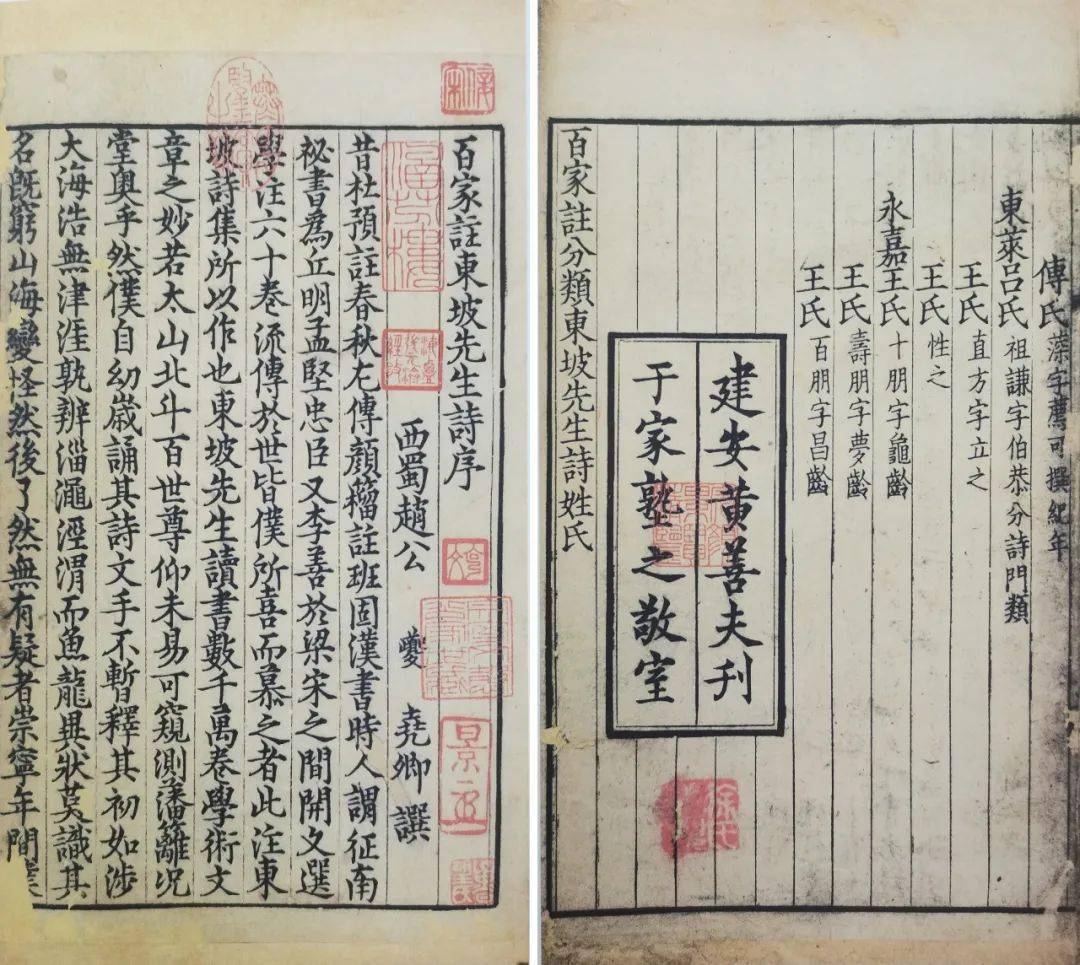 百家註東坡先生詩序
西蜀趙公 夔 堯卿 撰
昔杜預註春秋左傳顔籀註班固漢書時人謂征南
祕書為丘明孟堅忠臣又李善於梁宋之間開文選
學注六十卷流傳於世皆僕所喜而慕之者此注東
坡詩集所以作也東坡先生讀書數千萬卷學術文
章之妙若太山北斗百世尊仰未易可窺測藩籬况
堂奧乎然僕自幼歲誦其詩文手不暫釋其初如涉
大海浩無津涯孰辨淄澠涇渭而魚龍異狀莫識其
名既窮山海變怪然後了然無有疑者崇寧年間
涵芬樓
海鹽張元濟經收
傅氏 藻字薦可撰紀年
東萊呂氏 祖謙字伯恭分詩門類
王氏 直方字立之
王氏 性之
永嘉王氏 十朋字龜齡
王氏 壽朋字夢齡
王氏 百朋字昌齡
建安黃善夫刊
于家塾之敬室
百家註分類東坡先生詩姓氏